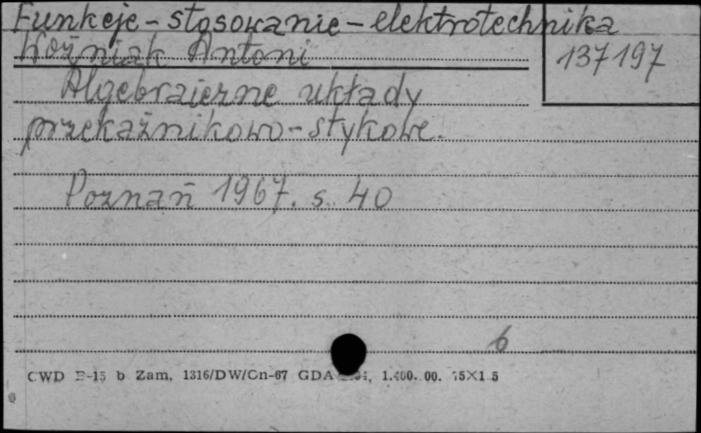 Funkcje - stosowanie - elektrotechnika
Woźniak Antoni
137197
Algebraiczne układy
przekaźnikowo-stykowe.
Poznań 1967. s. 40
6
CWD B-15 b Zam. 1316/DW/Gn-67 GDA